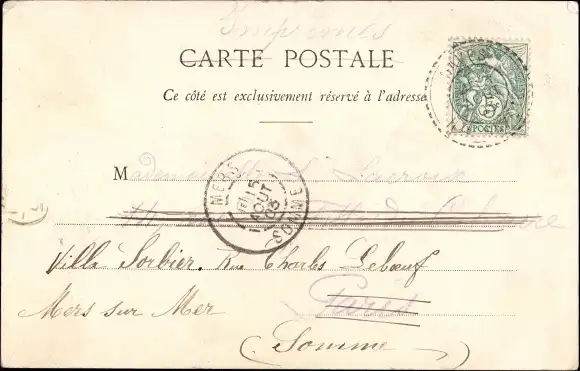 Imprimés
CARTE POSTALE
Ce côté est exclusivement réservé à l'adresse
5
POSTES
Mademoiselle S. Lacroix
MERS
15 AOUT 03
SOMME
Villa Sorbier. Rue Charles Leboeuf
Mers sur Mer
Paris
(Somme)